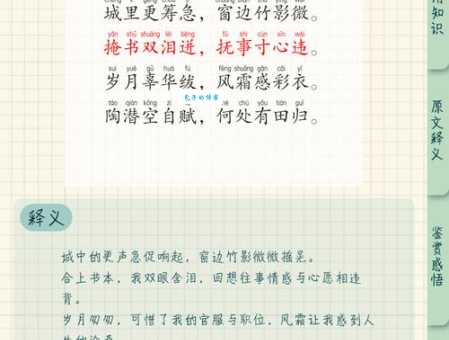 chéng lǐ gēng chóu jí chuāng biān zhú yǐng wēi
城里更筹急，窗边竹影微。
yǎn shū shuāng lèi bèng fǔ shì cùn xīn wéi
掩书双泪迸，抚事寸心违。
suì yuè gū huá fú fēng shuāng gǎn cǎi yī
岁月辜华绂，风霜感彩衣。
táo qián kōng zì fù hé chù yǒu tián guī
陶潜空自赋，何处有田归。
知识
原文释义
鉴赏感悟
释义
城中的更声急促响起，窗边竹影微微摇晃。
合上书本，我双眼含泪，回想往事情感与心愿相违
背。
岁月匆匆，可惜了我的官服与职位，风霜让我感到人